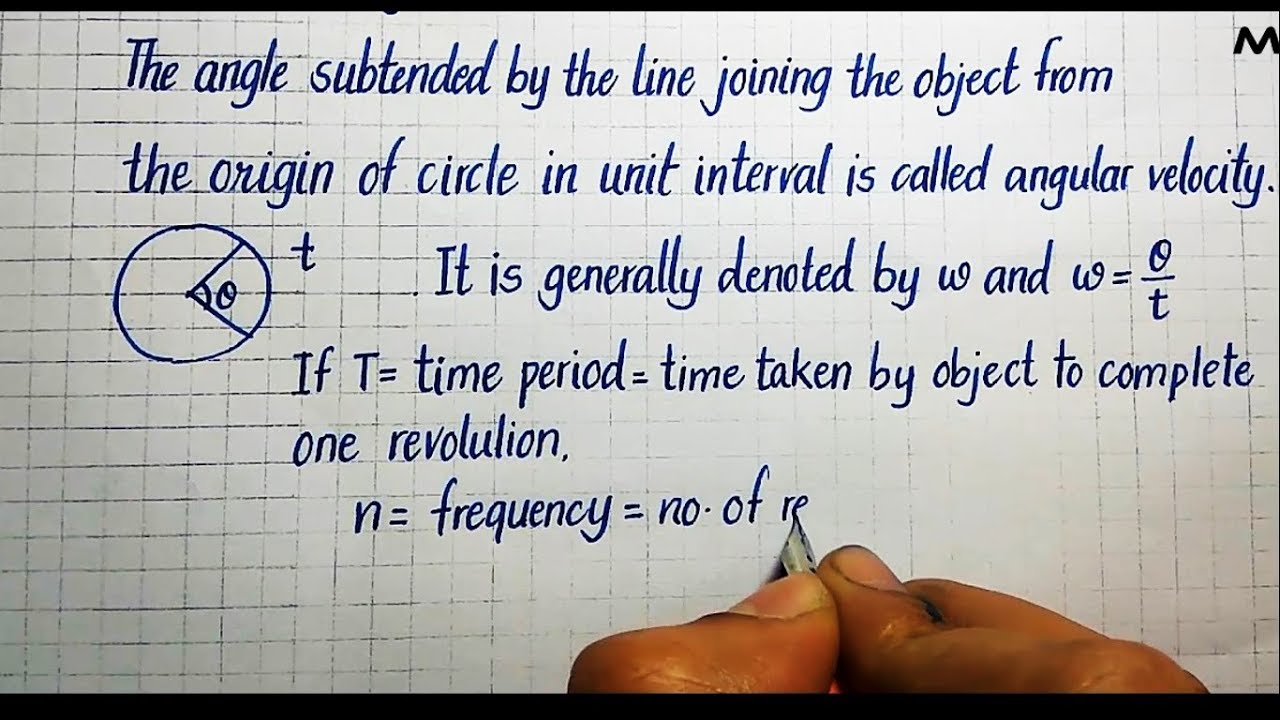 M
The angle subtended by the line joining the object from
the origin of circle in unit interval is called angular velocity.
t
θ
It is generally denoted by ω and ω = θ/t
If T = time period = time taken by object to complete
one revolulion,
n = frequency = no. of re